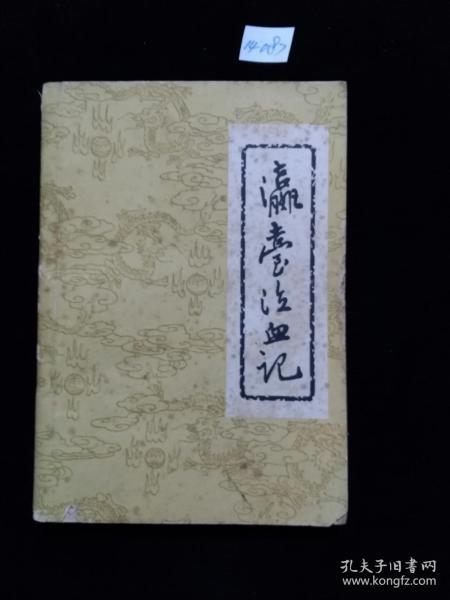 14-087
瀛臺泣血记
孔夫子旧书网
www.kongfz.com